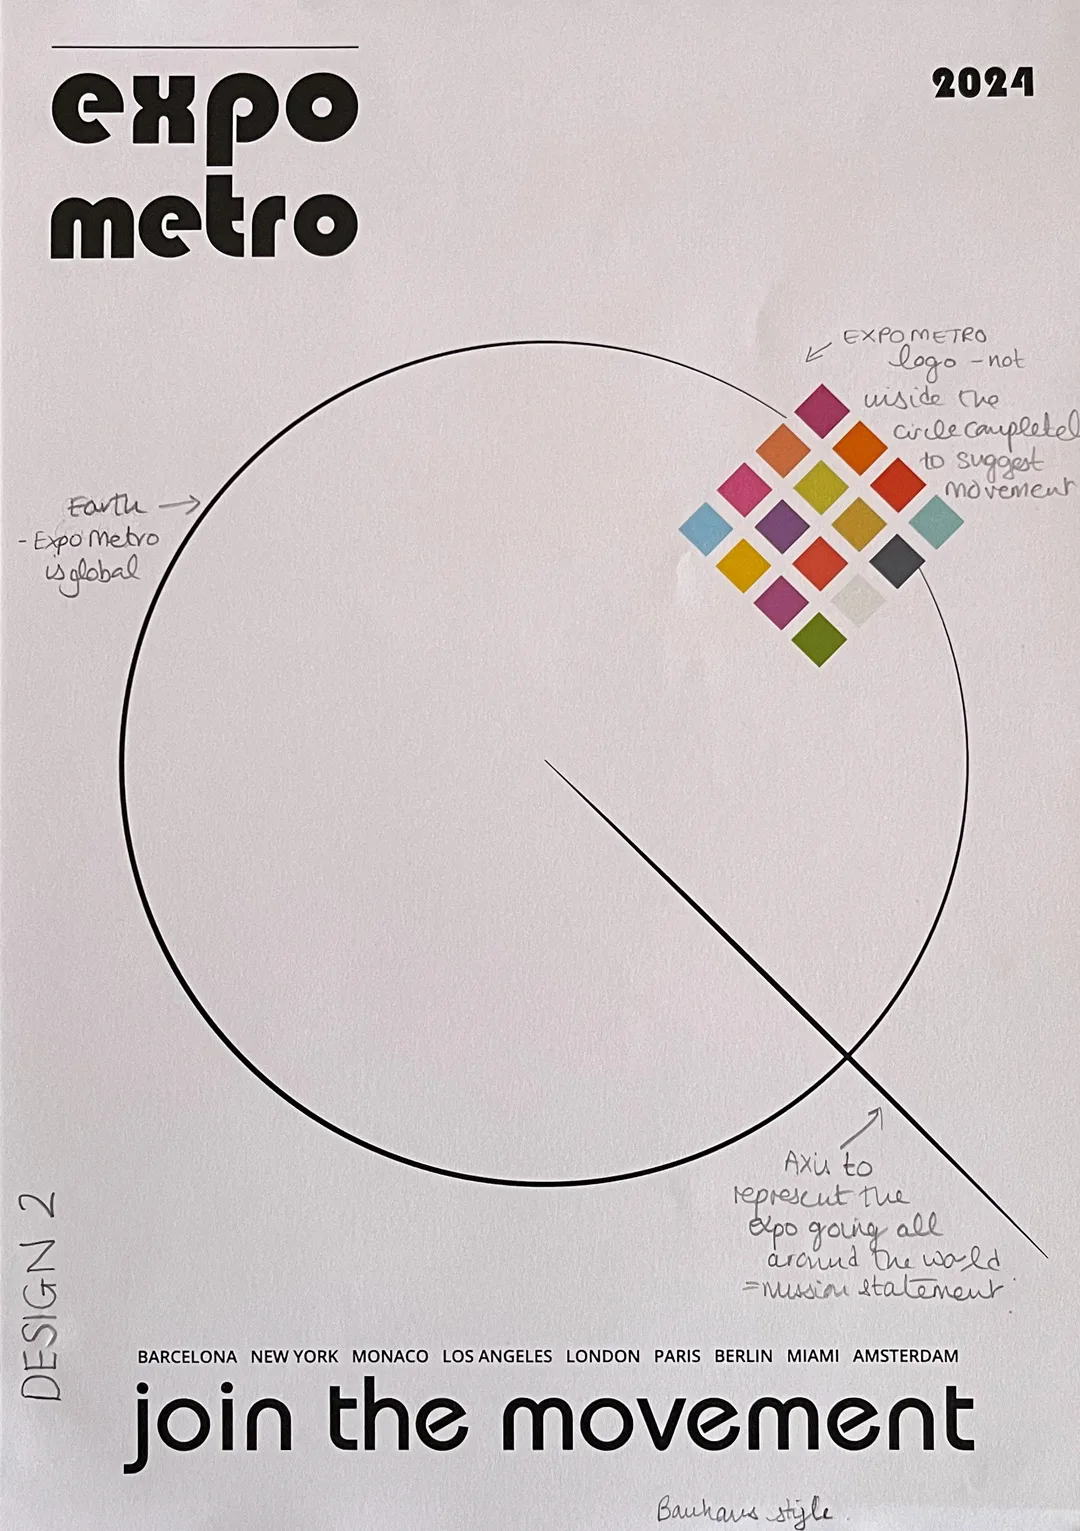 expo
metro
2024
EXPO METRO
logo - not
inside the
circle completel
to suggest
movement
Earth
- Expo Metro
is global
Axis to
represent the
expo going all
around the world
= mission statement
DESIGN 2
BARCELONA NEW YORK MONACO LOS ANGELES LONDON PARIS BERLIN MIAMI AMSTERDAM
join the movement
Bauhaus style.